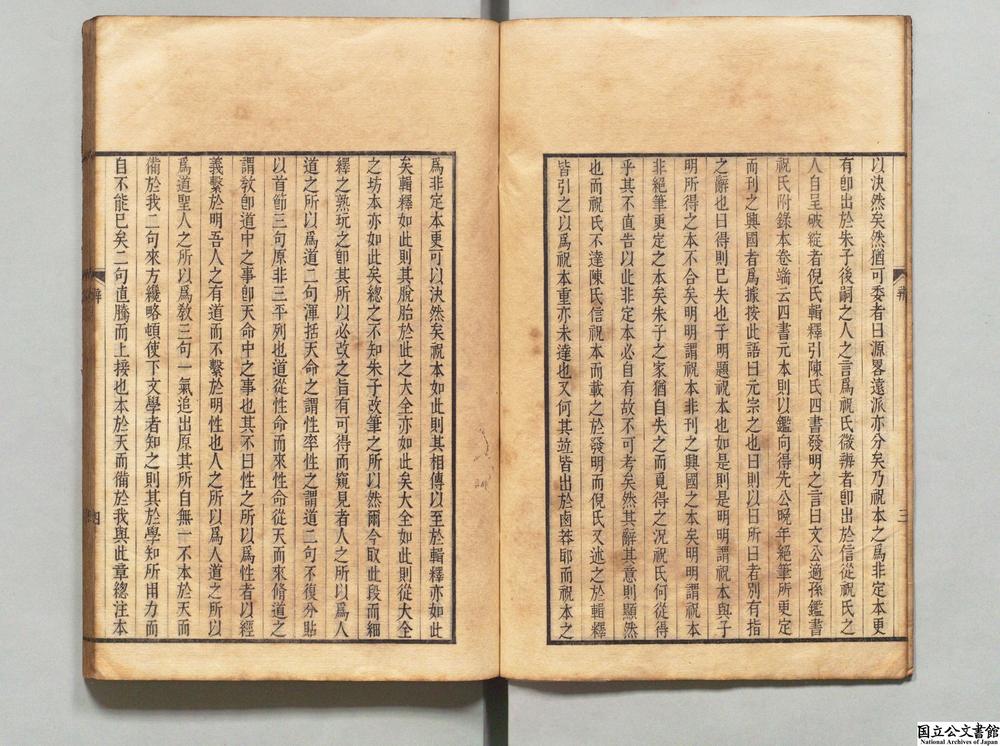 以決然矣然猶可委者曰源畧遠派亦分矣乃祝本之爲非定本更
有卽出於朱子後嗣之人之言爲祝氏微辨者卽出於信從祝氏之
人自呈破綻者倪氏輯釋引陳氏四書發明之言曰文公適孫鑑書
祝氏附錄本卷端云四書元本則以鑑向得先公晚年絕筆所更定
而刊之興國者爲據按此語曰元宗之也曰則以曰所曰者別有指
之辭也曰得則已失也子明題祝本也如是則是明明謂祝本與子
明所得之本不合矣明明謂祝本非刊之興國之本矣明明謂祝本
非絕筆更定之本矣朱子之家猶自失之而覓得之況祝氏何從得
乎其不直告以此非定本必自有故不可考矣然其辭其意則顯然
也而祝氏不達陳氏信祝本而載之於發明而倪氏又述之於輯釋
皆引之以爲祝本重亦未達也又何其並皆出於鹵莽耶而祝本之
辨
三
爲非定本更可以決然矣祝本如此則其相傳以至於輯釋亦如此
矣輯釋如此則其脫胎於此之大全亦如此矣大全如此則從大全
之坊本亦如此矣總之不知朱子改筆之所以然爾今取此段而細
釋之熟玩之卽其所以必改之旨有可得而窺見者人之所以爲人
道之所以爲道二句渾括天命之謂性率性之謂道二句不復分貼
以首節三句原非三平列也道從性命而來性命從天而來脩道之
謂敎卽道中之事卽天命中之事也其不曰性之所以爲性者以經
義繫於明吾人之有道而不繫於明性也人之所以爲人道之所以
爲道聖人之所以爲敎三句一氣追出原其所自無一不本於天而
備於我二句來方纔略頓使下文學者知之則其於學知所用力而
自不能已矣二句直騰而上接也本於天而備於我與此章總注本
辨
四
国立公文書館
National Archives of Japan